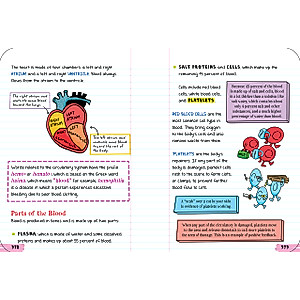 The heart is made of four chambers: a left and right
ATRIUM and a left and right VENTRICLE. Blood always
flows from the atrium to the ventricle.
The right atrium
and
blood
beyond the lungs.
RIGHT
LEFT
The left atrium
and ventricle move
blood around the
body.
Words related to the circulatory system have the prefix
hemo- or hemato-, which is based on the Greek word
haima and means "blood." For example, hemophilia
is a disease in which a person experiences excessive
bleeding due to poor blood clotting.
Parts of the Blood
Blood is produced in bones and is made up of two parts:
PLASMA, which is made of water and some dissolved
proteins and makes up about 55 percent of blood.
378
SALT, PROTEINS and CELLS, which make up the
remaining 45 percent of blood.
Cells include red blood
cells, white blood cells,
and PLATELETS.
Because 45 percent of the blood
is made up of salt and cells, blood
is a lot thicker than a solution like
salt water, which contains about
only 5 percent salt and a much higher
percentage of water than blood.
RED BLOOD CELLS are the
most common cell type in
blood. They bring oxygen
to the body's cells and also
remove waste from them.
PLATELETS are the body's
repairers. If any part of the
body is damaged, platelet cells
rush to the scene to form clots,
or clumps, to prevent further
blood loss.
A "scab" over a cut on your skin
is evidence of platelets working.
When any part of the circulatory is damaged, platelets move
to the area and release chemicals to call more platelets to
the area of damage. This is an example of positive feedback.
379